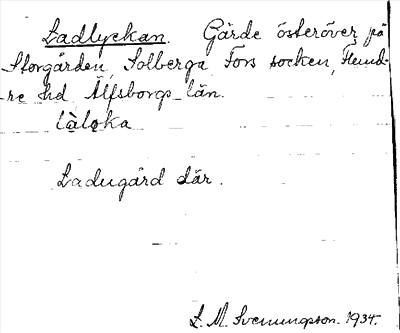 Ladlyckan. Gärde österöver på
Storgården, Solberga Fors socken, Flund-
re hd Älfsborgs län.
làlo̥ka
Ladugård där.
L. M. Svenungsson. 1934.